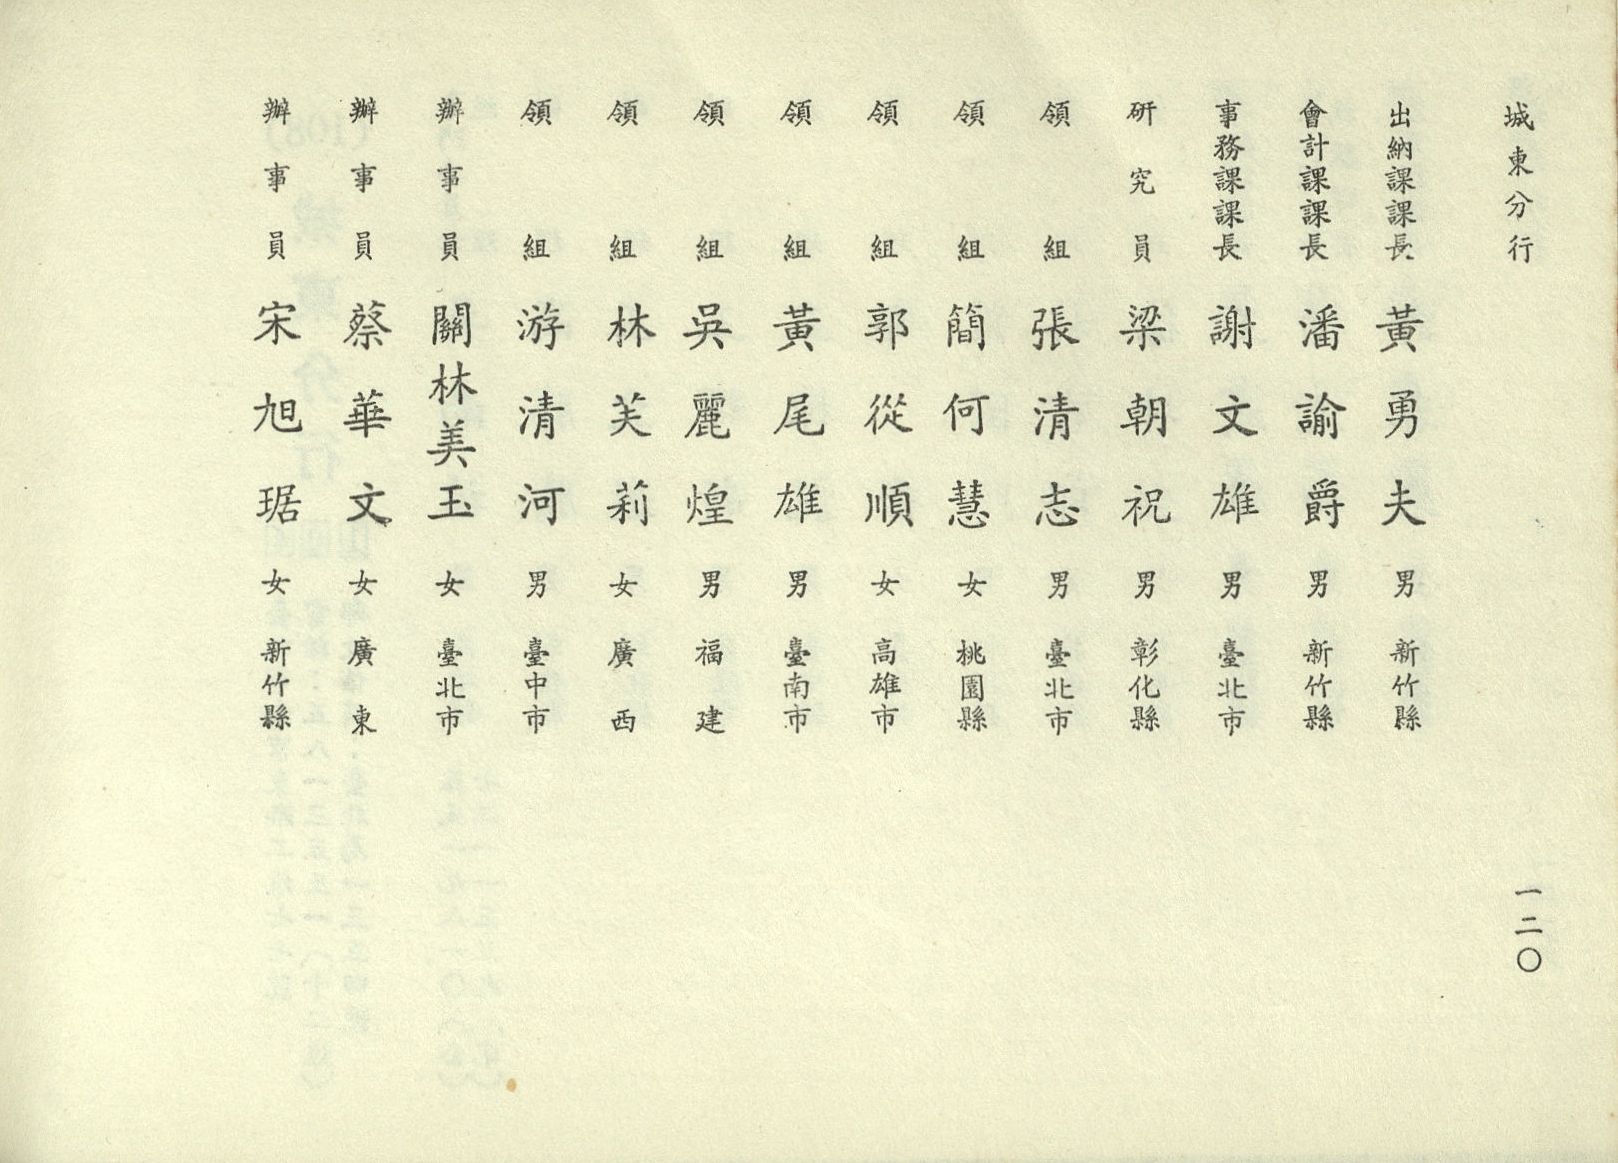 城東分行
一二〇
出納課課長 黃勇夫 男 新竹縣
會計課課長 潘諭爵 男 新竹縣
事務課課長 謝文雄 男 臺北市
研究員 梁朝祝 男 彰化縣
領組 張清志 男 臺北市
領組 簡何慧 女 桃園縣
領組 郭從順 女 高雄市
領組 黃尾雄 男 臺南市
領組 吳麗煌 男 福建
領組 林芙莉 女 廣西
領組 游清河 男 臺中市
辦事員 關林美玉 女 臺北市
辦事員 蔡華文 女 廣東
辦事員 宋旭琚 女 新竹縣